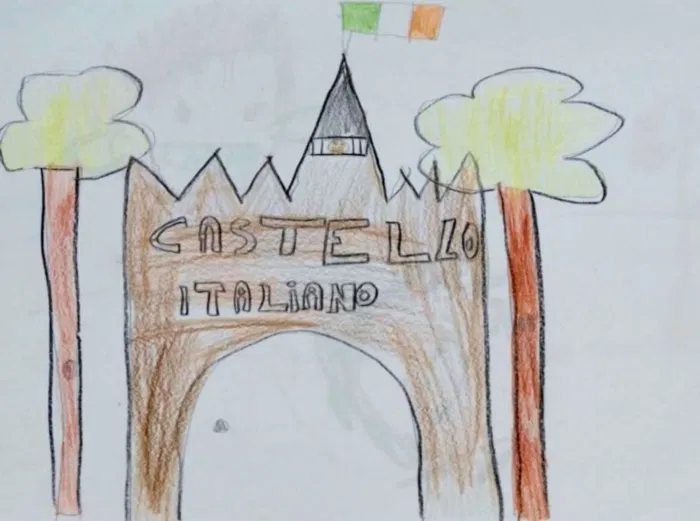 CASTELLO
ITALIANO